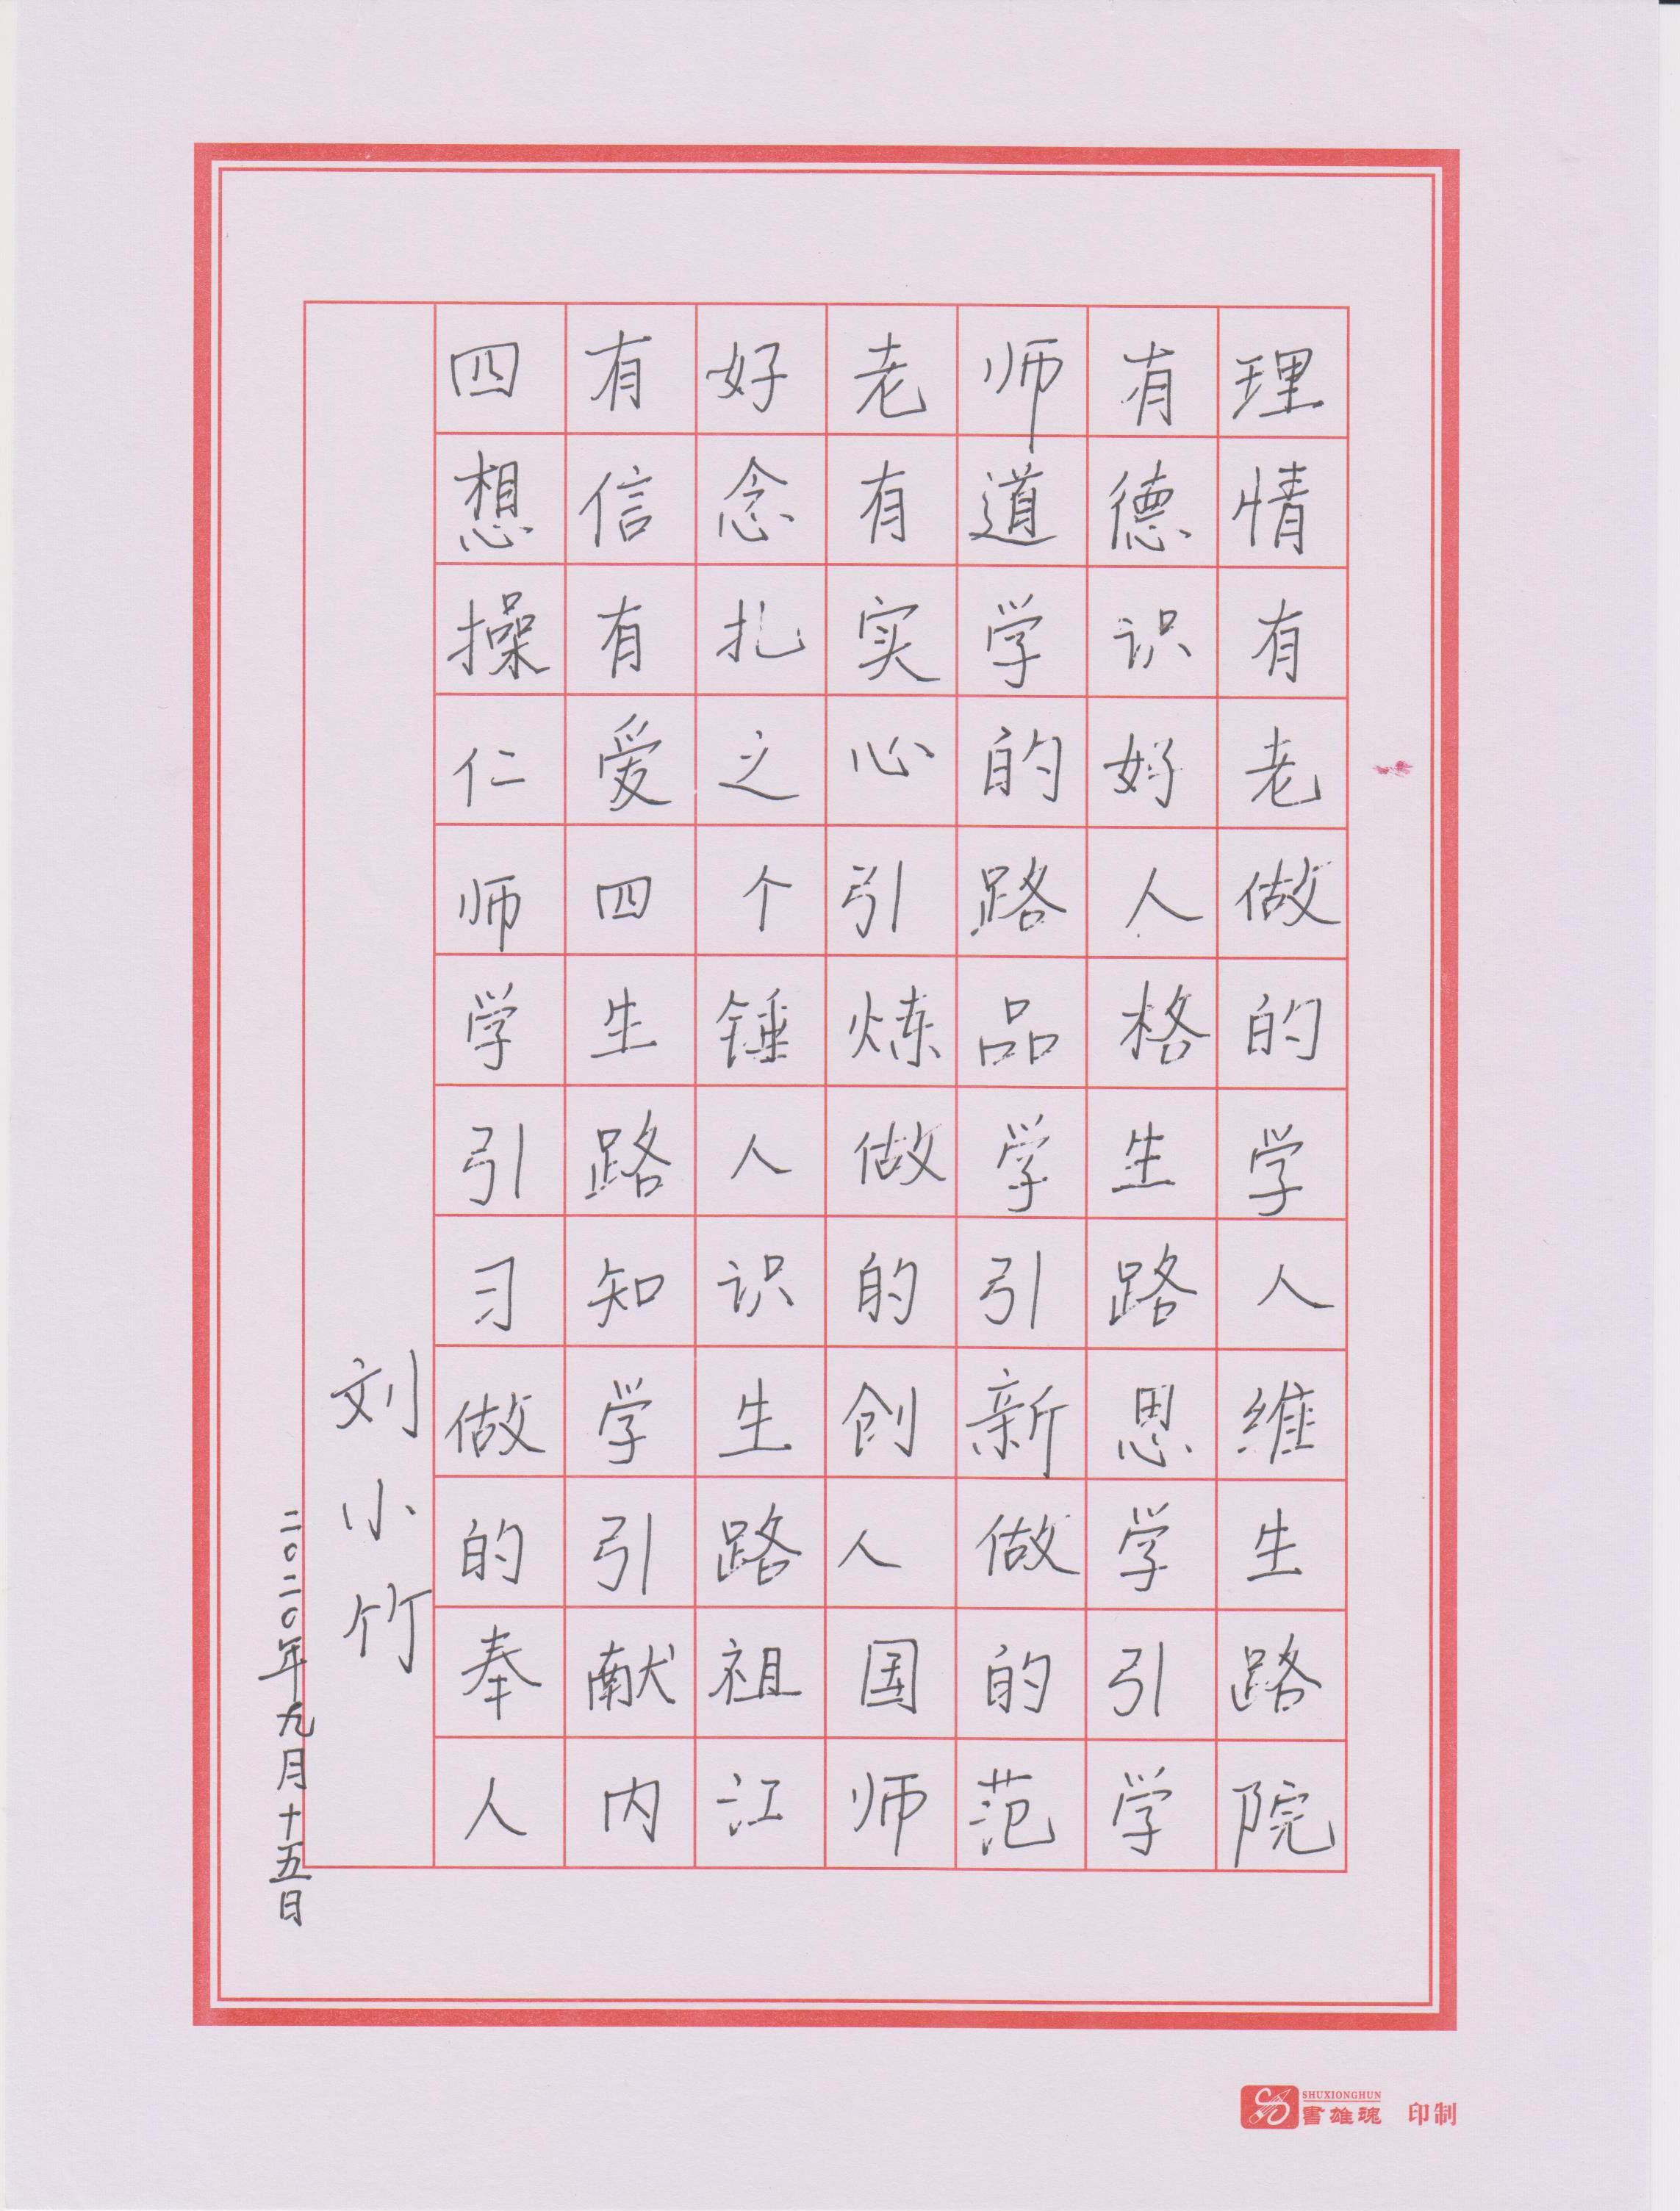 四有好老师有理
想信念有道德情
操有扎实学识有
仁爱之心的好老
师四个引路人做
学生锤炼品格的
引路人做学生学
习知识的引路人
做学生创新思维
的引路人做学生
奉献祖国的引路
人内江师范学院
刘小竹
二〇二〇年九月十五日
SHUXIONGHUN
書雄魂 印制